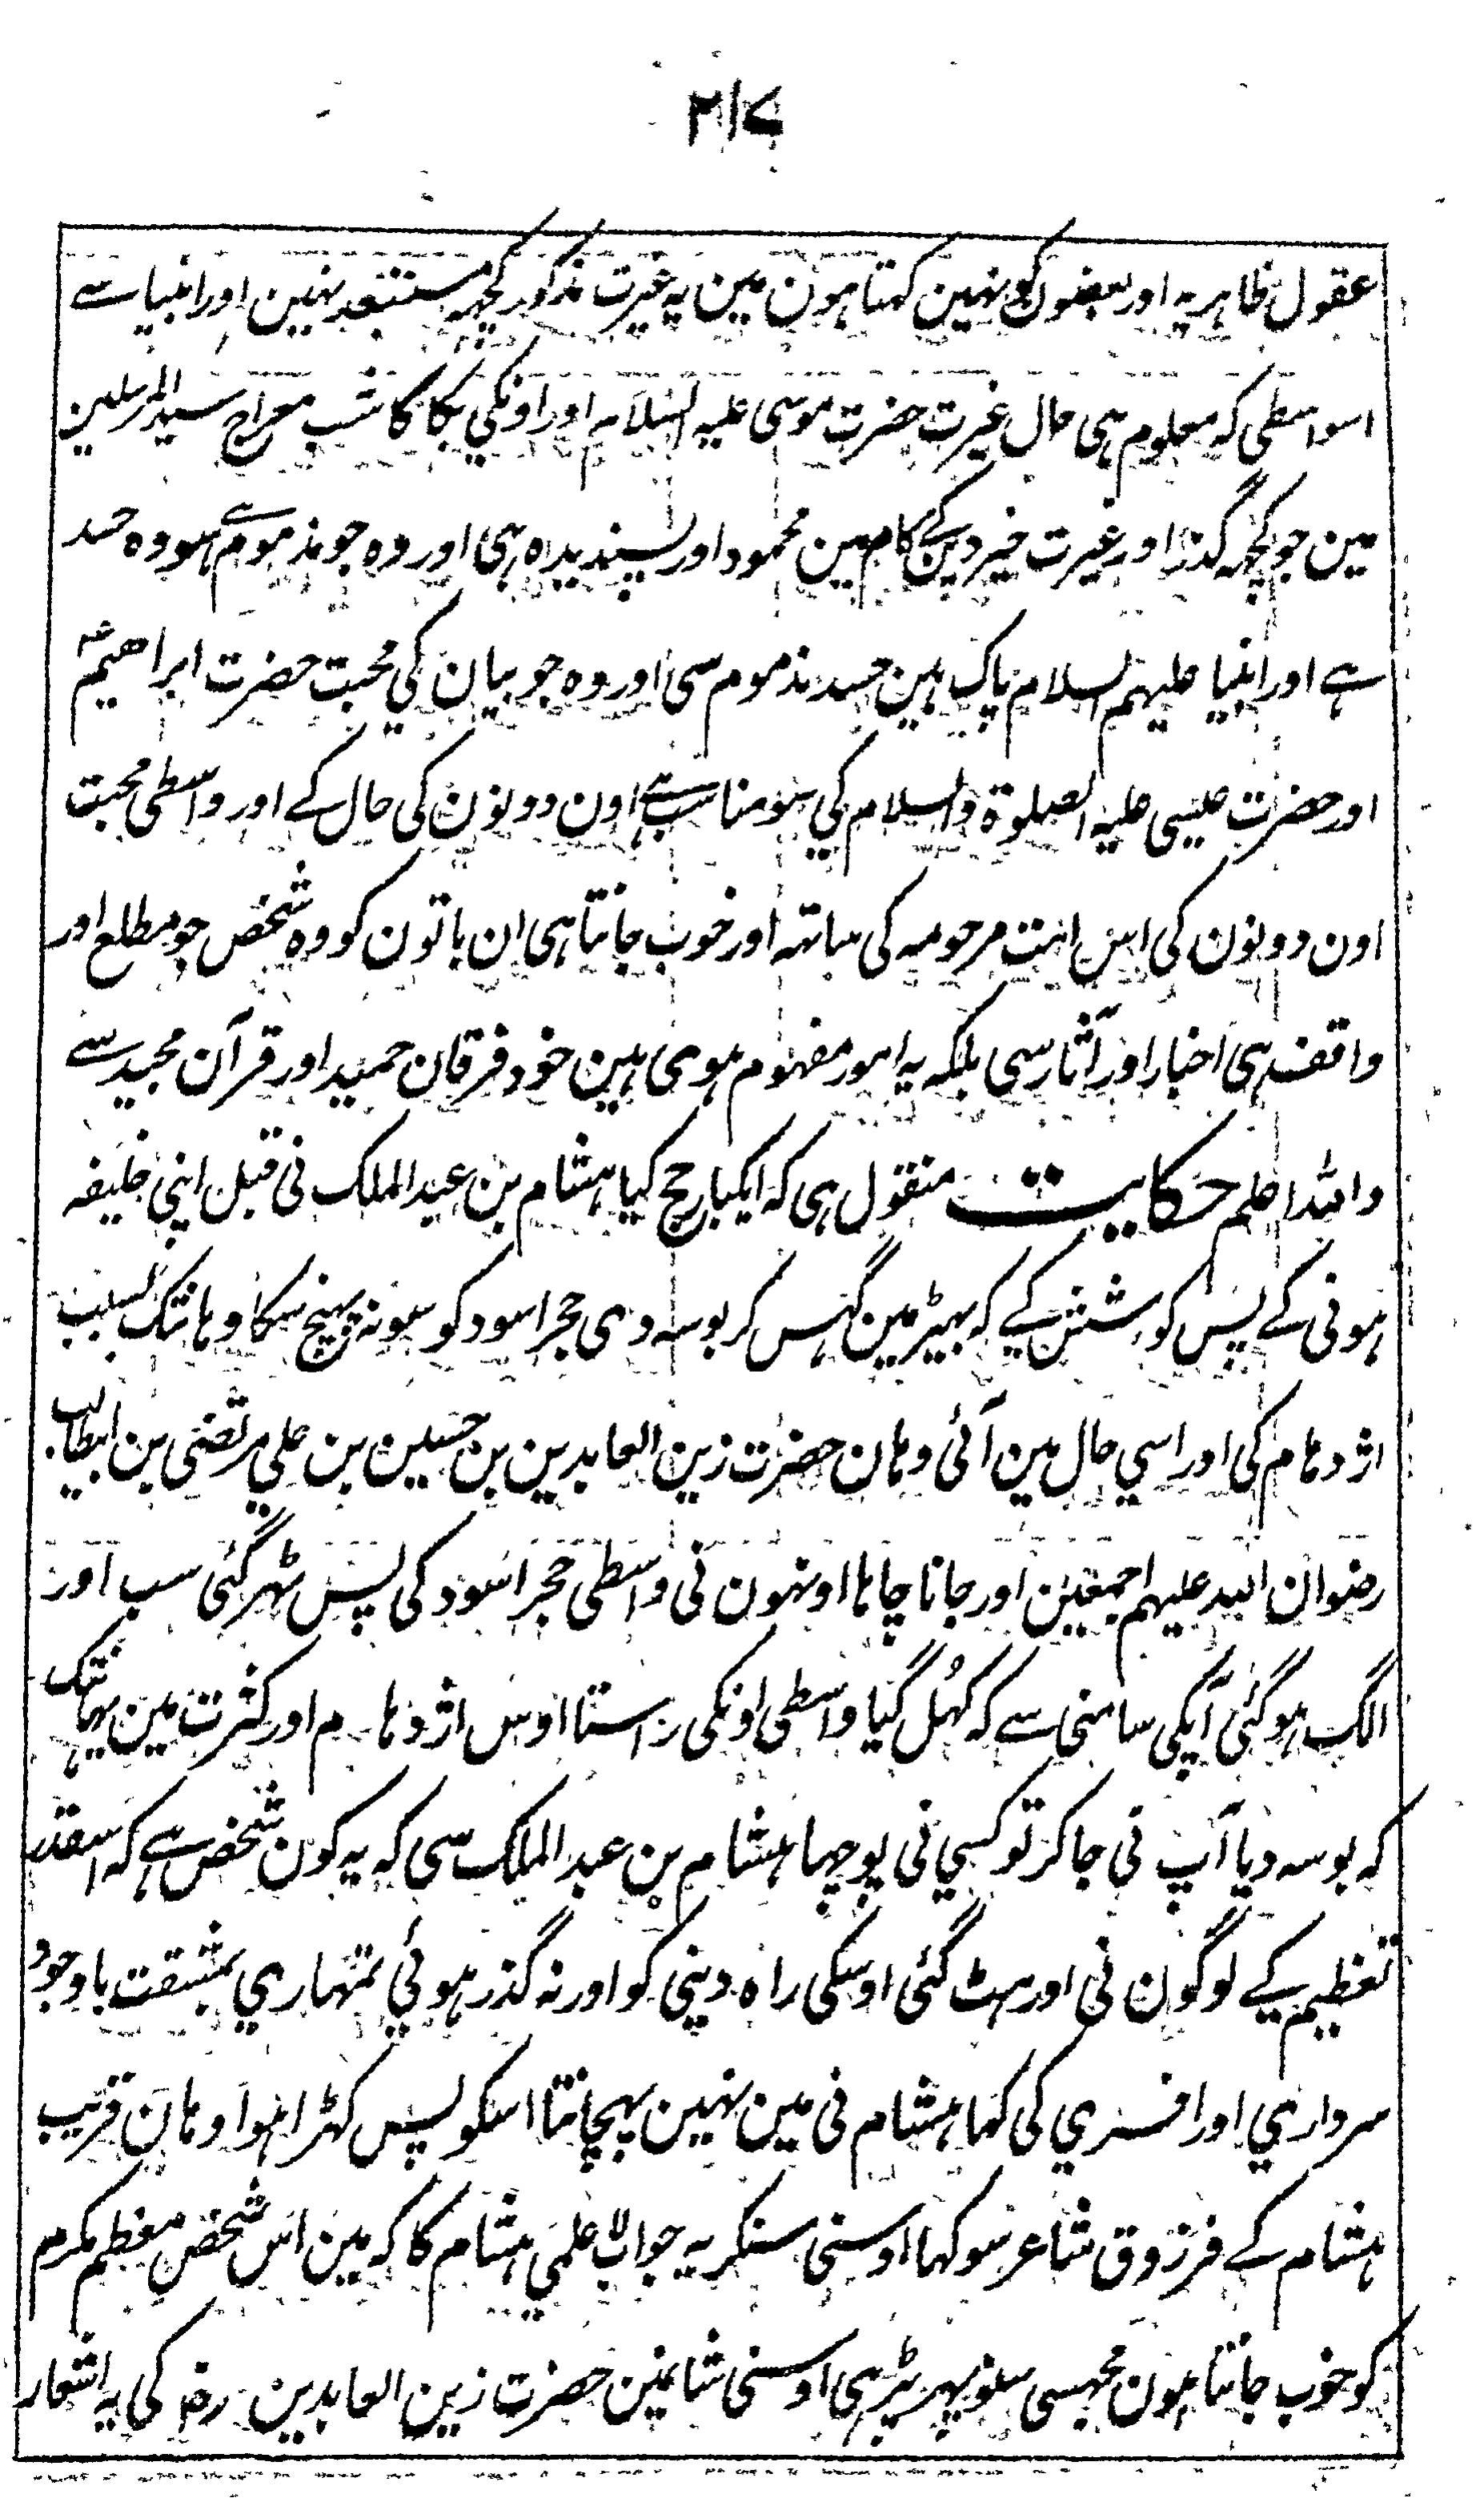 ۳۱۷
عقول ظاہریہ اور بعضوں کو نہین کہتا ہون مین یہ غیرت مذکور کچہہ مستبعد نہین اور انبیا سے
اسواسطی کہ معلوم ہی حال غیرت حضرت موسی علیہ السلام اور اونکی بکا کا شب معراج سید المرسلین
مین جو کچہہ گذرا اور غیرت خیر دین کے کام مین محمود اور پسندیدہ ہی اور وہ جو مذموم ہے سو وہ حسد
ہے اور انبیا علیہم السلام پاک ہین حسد مذموم سی اور وہ جو بیان کی محبت حضرت ابراهیمؑ
اور حضرت عیسی علیہ الصلوۃ والسلام کی سو مناسب ہے اون دونون کی حال کے اور واسطی محبت
اون دونون کی اس امت مرحومہ کی ساتہہ اور خوب جانتا ہی ان باتون کو وہ شخص جو مطلع اور
واقف ہی اخبار اور آثار سی بلکہ یہ امور مفہوم ہوی ہین خود فرقان حمید اور قرآن مجید سے
واللہ اعلم حکایت منقول ہی کہ ایکبار حج کیا ہشام بن عبدالملک نی قبل اپنی خلیفہ
ہونی کے پس کوشش کے کہ بہیڑ مین گہس کر بوسہ دی حجر اسود کو سو نہ پہنچ سکا وہانتک بسبب
اژدہام کی اور اسی حال مین آئی وہان حضرت زین العابدین بن حسین بن علی مرتضی بن ابیطالب
رضوان اللہ علیہم اجمعین اور جانا چاہا اونہون نی واسطی حجر اسود کی پس ٹہر گئی سب اور
الگ ہو گئی آپکی سامنی سے کہ کہُل گیا واسطی اونکی رستا اوس اژدہام اور کثرت مین یہانتک
کہ بوسہ دیا آپ نی جا کر تو کسی نی پوچہا ہشام بن عبدالملک سی کہ یہ کون شخص ہے کہ اسقدر
تعظیم کے لوگون نی اور ہٹ گئی اوسکی راہ دینی کو اور نہ گذر ہوئی تمہاری بمشقت باوجود
سرداری اور افسری کی کہا ہشام نی مین نہین پہچانتا اسکو پس کہڑا ہوا وہان قریب
ہشام کے فرزوق شاعر سو کہا اوسنی سنکر یہ جواب لاعلمی ہشام کا کہ مین اس شخص معظم مکرم
کو خوب جانتا ہون مجہسی سنو پہر پڑہی اوسنی شانمین حضرت زین العابدین رض کی یہ اشعار